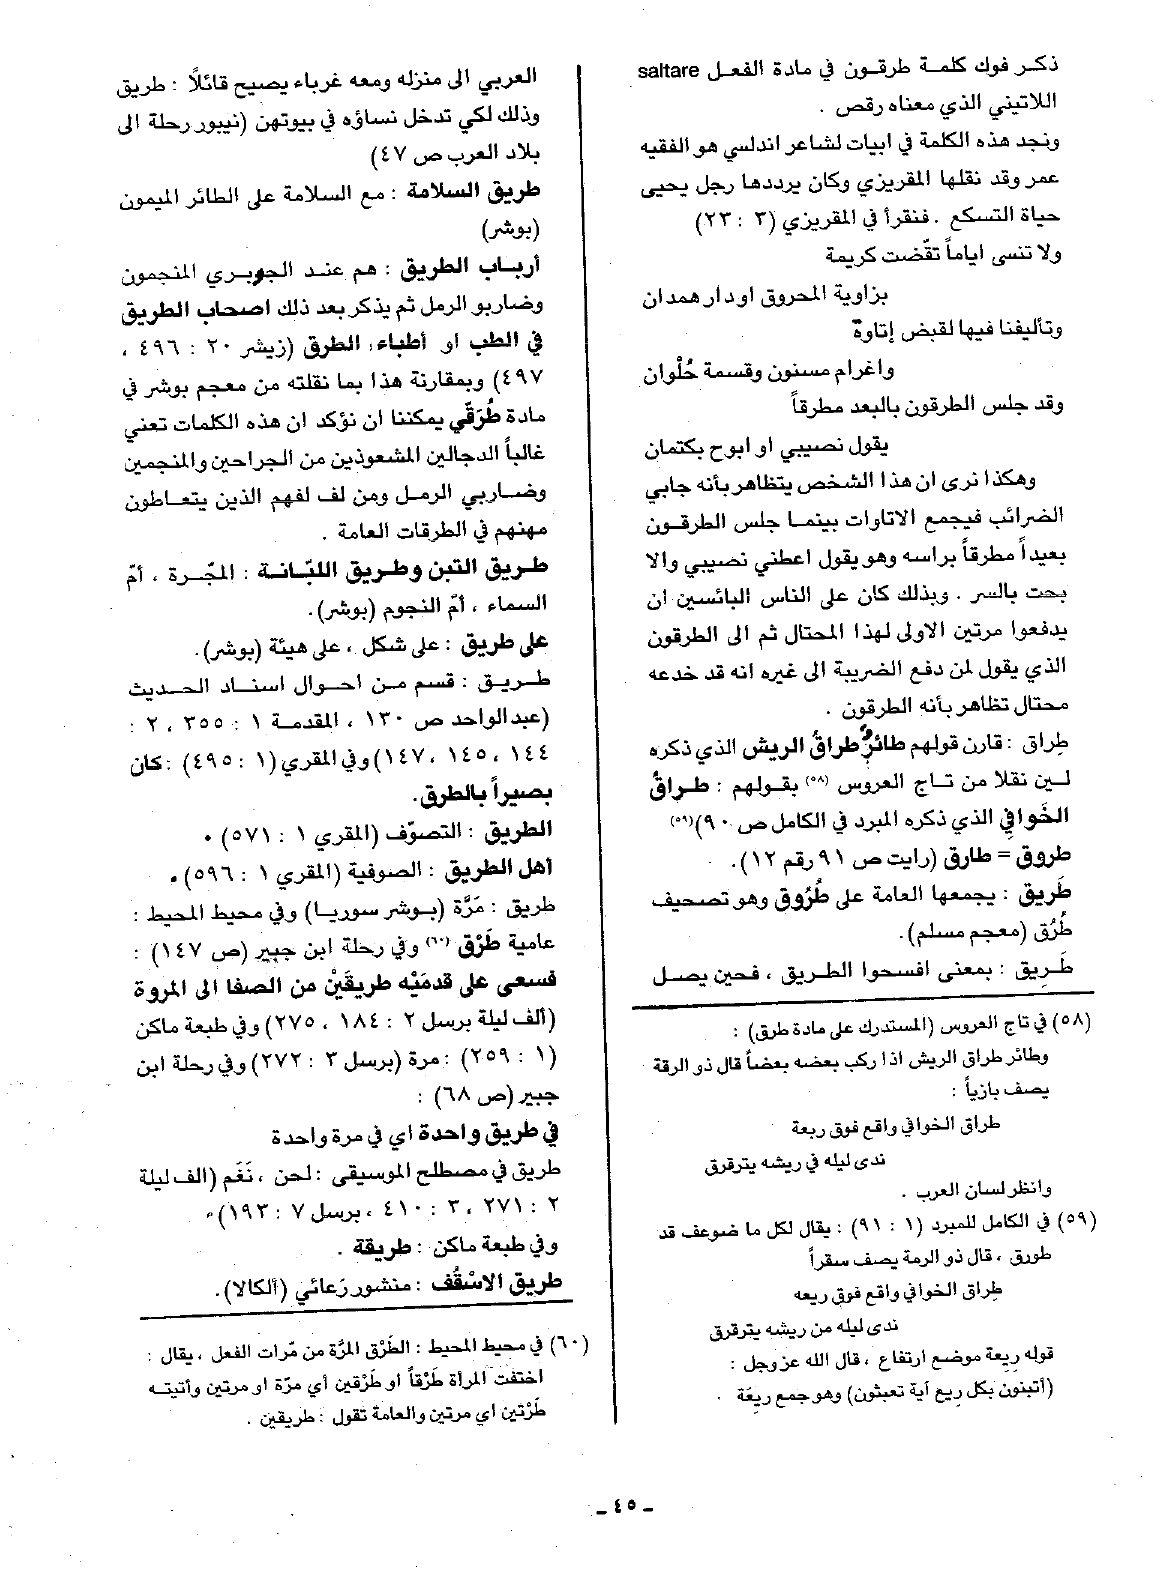 ذكر فوك كلمة طرقون في مادة الفعل saltare
اللاتيني الذي معناه رقص .
ونجد هذه الكلمة في ابيات لشاعر اندلسي هو الفقيه
عمر وقد نقلها المقريزي وكان يرددها رجل يحيى
حياة التسكع . فنقرأ في المقريزي (٣ : ٢٣)
ولا تنسى اياماً تقضّت كريمة
بزاوية المحروق او دار همدان
وتأليفنا فيها لقبض إتاوة
واغرام مسنون وقسمة حُلْوان
وقد جلس الطرقون بالبعد مطرقاً
يقول نصيبي او ابوح بكتمان
وهكذا نرى ان هذا الشخص يتظاهر بأنه جابي
الضرائب فيجمع الاتاوات بينما جلس الطرقون
بعيداً مطرقاً براسه وهو يقول اعطني نصيبي والا
بحت بالسر . وبذلك كان على الناس البائسين ان
يدفعوا مرتين الاولى لهذا المحتال ثم الى الطرقون
الذي يقول لمن دفع الضريبة الى غيره انه قد خدعه
محتال تظاهر بأنه الطرقون .
طِراق : قارن قولهم طائرٌ طراقُ الريش الذي ذكره
لين نقلا من تاج العروس (٥٨) بقولهم : طراقُ
الخَوافِي الذي ذكره المبرد في الكامل ص ٩٠)(٥٩)
طروق = طارق (رايت ص ٩١ رقم ١٢).
طَريق : يجمعها العامة على طُرُوق وهو تصحيف
طُرُق (معجم مسلم).
طَرِيق : بمعنى افسحوا الطريق ، فحين يصل
(٥٨) في تاج العروس (المستدرك على مادة طرق) :
وطائر طراق الريش اذا ركب بعضه بعضاً قال ذو الرقة
يصف بازياً :
طراق الخوافي واقع فوق ربعة
ندى ليله في ريشه يترقرق
وانظر لسان العرب .
(٥٩) في الكامل للمبرد (١ : ٩١) : يقال لكل ما ضوعف قد
طورق ، قال ذو الرمة يصف سقراً
طِراق الخوافي واقع فوق ريعه
ندى ليله من ريشه يترقرق
قوله رِيعة موضع ارتفاع ، قال الله عز وجل :
(أتبنون بكل ريع آية تعبثون) وهو جمع ريعَة .
العربي الى منزله ومعه غرباء يصيح قائلًا : طريق
وذلك لكي تدخل نساؤه في بيوتهن (نيبور رحلة الى
بلاد العرب ص ٤٧)
طريق السلامة : مع السلامة على الطائر الميمون
(بوشر)
أرباب الطريق : هم عند الجوبري المنجمون
وضاربو الرمل ثم يذكر بعد ذلك اصحاب الطريق
في الطب او أطباء الطرق (زيشر ٢٠ : ٤٩٦ ،
٤٩٧) وبمقارنة هذا بما نقلته من معجم بوشر في
مادة طُرَقّي يمكننا ان نؤكد ان هذه الكلمات تعني
غالباً الدجالين المشعوذين من الجراحين والمنجمين
وضاربي الرمل ومن لف لفهم الذين يتعاطون
مهنهم في الطرقات العامة .
طريق التبن وطريق اللبّانة : المجّرة ، أمّ
السماء ، أمّ النجوم (بوشر).
على طريق : على شكل ، على هيئة (بوشر).
طريق : قسم من احوال اسناد الحديث
(عبد الواحد ص ١٣٠ ، المقدمة ١ : ٣٥٥ ، ٢ :
١٤٤ ، ١٤٥ ، ١٤٧) وفي المقري (١ : ٤٩٥) : كان
بصيراً بالطرق.
الطريق : التصوّف (المقري ١ : ٥٧١) .
أهل الطريق : الصوفية (المقري ١ : ٥٩٦) .
طريق : مَرَّة (بوشر سوريا) وفي محيط المحيط :
عامية طَرْق (٦٠) وفي رحلة ابن جبير (ص ١٤٧) :
فسعى على قدمَيْه طريقَيْن من الصفا الى المروة
(ألف ليلة برسل ٢ : ١٨٤ ، ٢٧٥) وفي طبعة ماكن
(١ : ٢٥٩) : مرة (برسل ٣ : ٢٧٢) وفي رحلة ابن
جبير (ص ٦٨) :
في طريق واحدة اي في مرة واحدة
طريق في مصطلح الموسيقى : لحن ، نَغَم (الف ليلة
٢ : ٢٧١ ، ٣ : ٤١٠ ، برسل ٧ : ١٩٣).
وفي طبعة ماكن : طريقة .
طريق الاسْقُف : منشور رَعائي (ألكالا).
(٦٠) في محيط المحيط : الطَرْق المرَّة من مّرات الفعل ، يقال :
اختفت المرأة طَرْقاً أو طَرْقين أي مرّة او مرتين وأتيته
طَرْتين اي مرتين والعامة تقول : طريقين .
ـ ٤٥ ـ